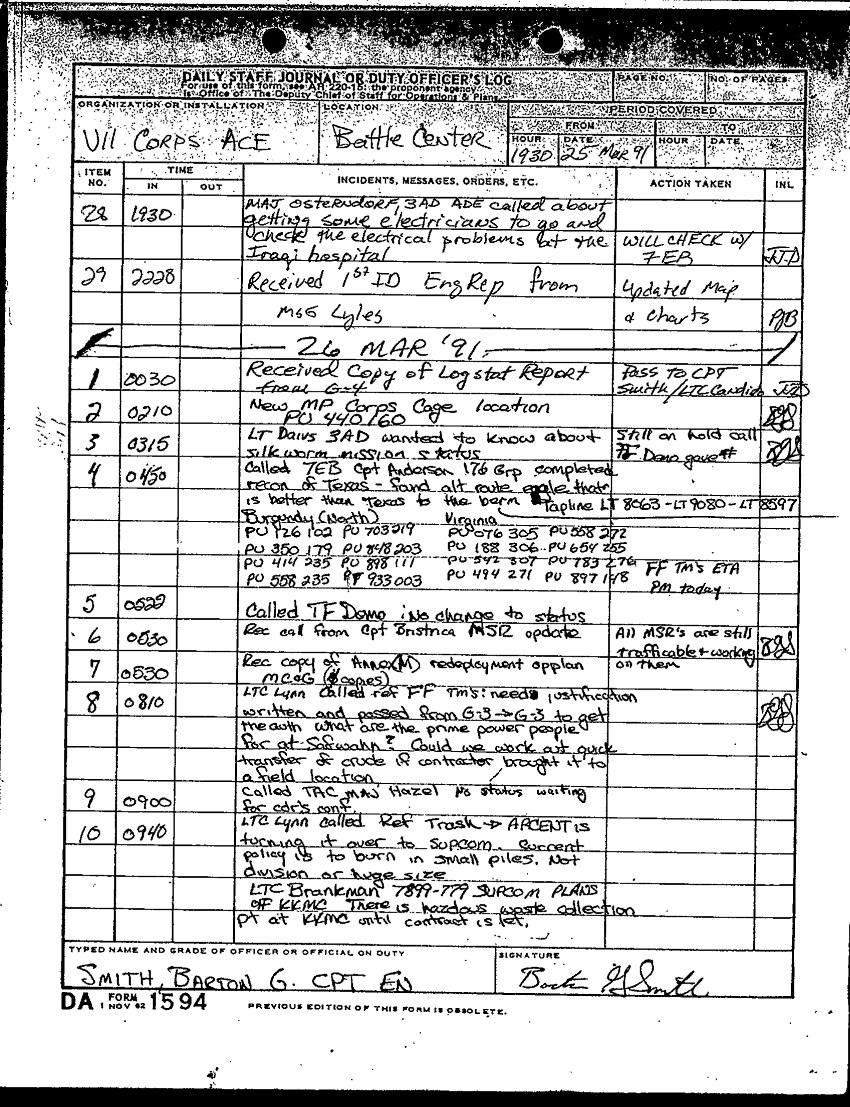 DAILY STAFF JOURNAL OR DUTY OFFICER'S LOG
For use of this form, see AR 220-15; the proponent agency
is Office of The Deputy Chief of Staff for Operations & Plans
PAGE NO. NO. OF PAGES
ORGANIZATION OR INSTALLATION LOCATION PERIOD COVERED
VII CORPS ACE Battle Center
FROM TO
HOUR DATE HOUR DATE
1930 25 Mar 91
ITEM NO. TIME INCIDENTS, MESSAGES, ORDERS, ETC. ACTION TAKEN INL
IN OUT
28 1930 MAJ OSTERNDORF, 3AD ADE called about
getting some electricians to go and
check the electrical problems at the WILL CHECK W/
Iraqi hospital 7 EB
29 2228 Received 1st ID Eng Rep from Updated Map
MSG Lyles & Charts PJB
26 MAR '91
1 0030 Received Copy of Logstat Report PASS TO CPT
from G-4 Smith/LTC Candido
2 0210 New MP Corps Cage location
PU 440160
3 0315 LT Davis 3AD wanted to know about Still on hold call
silk worm mission status TF Demo gave #
4 0450 Called 7EB Cpt Anderson 176 Grp completed
recon of Texas - found alt route eagle that
is better than Texas to the berm Tapline LT 8063 - LT 9080 - LT 8597
Burgundy (North) Virginia
PU 126 102 PU 703219 PU 076 305 PU 558 272
PU 350 179 PU 848 203 PU 188 306 PU 654 255
PU 414 235 PU 898 111 PU 342 307 PU 783 276 FF TM's ETA
PU 558 235 933 003 PU 494 271 PU 897 148 PM today
5 0522 Called TF Demo : No change to status
6 0530 Rec call from Cpt MSR update All MSR's are still
trafficable & working
7 0530 Rec copy of Annex (M) redeployment opplan on them
MC&G ( copies)
8 0810 LTC Lynn called ref FF TM's: needs justification
written and passed from G-3 → G-3 to get
the auth what are the prime power people
for at Safwahn? Could we work out quick
transfer of crude if contractor brought it to
a field location
9 0900 Called TAC MAJ Hazel No status waiting
for cdr's conf.
10 0940 LTC Lynn called Ref Trash → ARCENT is
turning it over to SUPCOM. Current
policy is to burn in small piles. Not
division or huge size
LTC Brankman 7899-779 SUPCOM PLANS
off KKMC There is hazdous waste collection
pt at KKMC until contract is let.
TYPED NAME AND GRADE OF OFFICER OR OFFICIAL ON DUTY SIGNATURE
SMITH, BARTON G. CPT EN Barton G Smith
DA FORM 1 NOV 62 1594 PREVIOUS EDITION OF THIS FORM IS OBSOLETE.